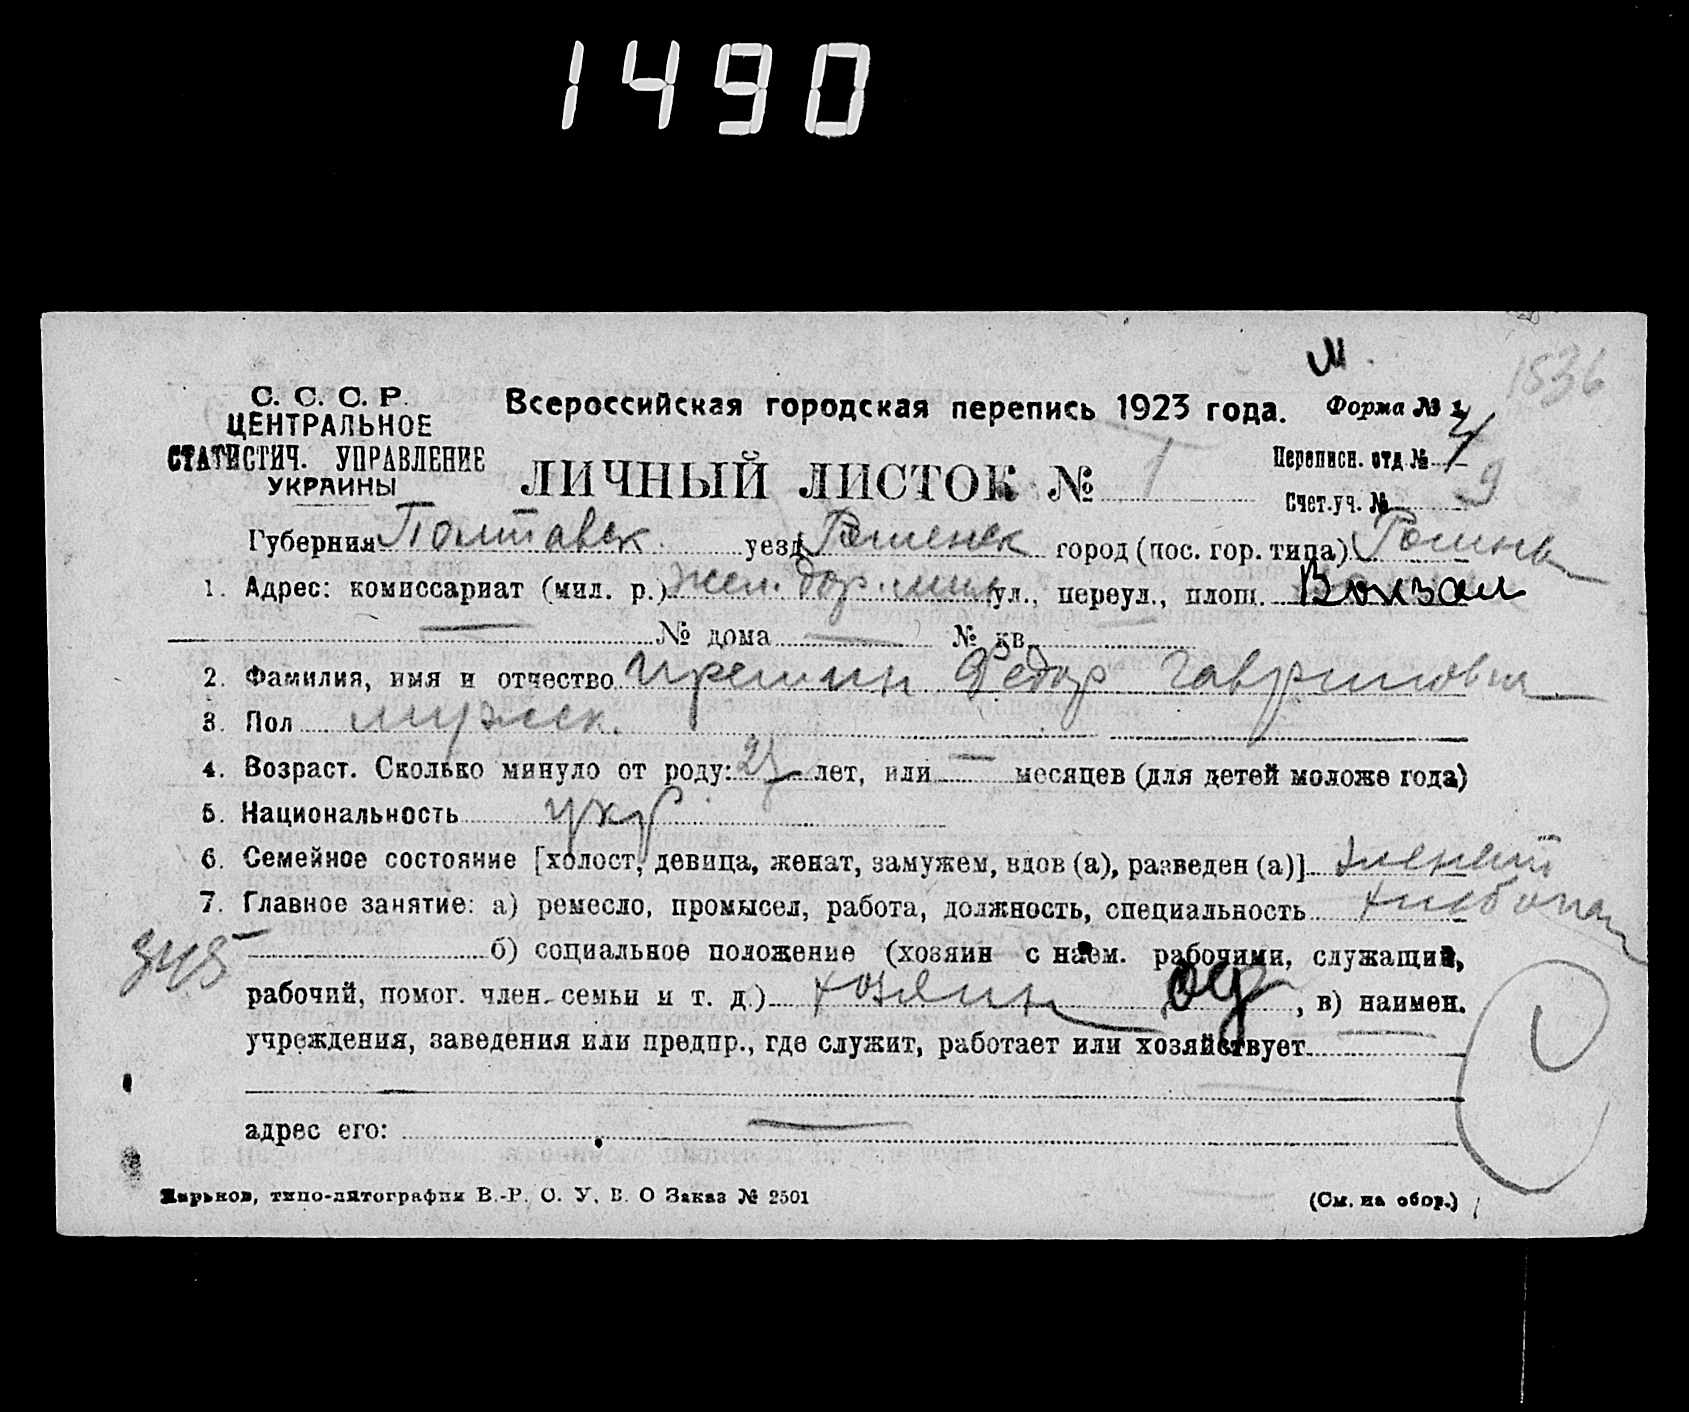 1490
М.
1536
С. С. С. Р.
ЦЕНТРАЛЬНОЕ
СТАТИСТИЧ. УПРАВЛЕНИЕ
УКРАИНЫ
Всероссийская городская перепись 1923 года. Форма № 1
ЛИЧНЫЙ ЛИСТОК № 1
Переписн. отд. № 4
Счет. уч. № 9
Губерния Полтавск. уезд Роменск город (пос. гор. типа) Ромны
1. Адрес: комиссариат (мил. р.) жел. дор. мил ул., переул., площ. Вокзал
№ дома № кв.
2. Фамилия, имя и отчество Федор Гаврилович
3. Пол мужск.
4. Возраст. Сколько минуло от роду: лет, или — месяцев (для детей моложе года)
5. Национальность укр
6. Семейное состояние [холост, девица, женат, замужем, вдов (а), разведен (а)] женат
7. Главное занятие: а) ремесло, промысел, работа, должность, специальность хлебопаш
б) социальное положение (хозяин с наем. рабочими, служащий,
рабочий, помог. член. семьи и т. д.) хозяин од , в) наимен.
учреждения, заведения или предпр., где служит, работает или хозяйствует —
адрес его: —
Харьков, типо-литография В.-Р. С. У. В. О Заказ № 2501
(См. на обор.)